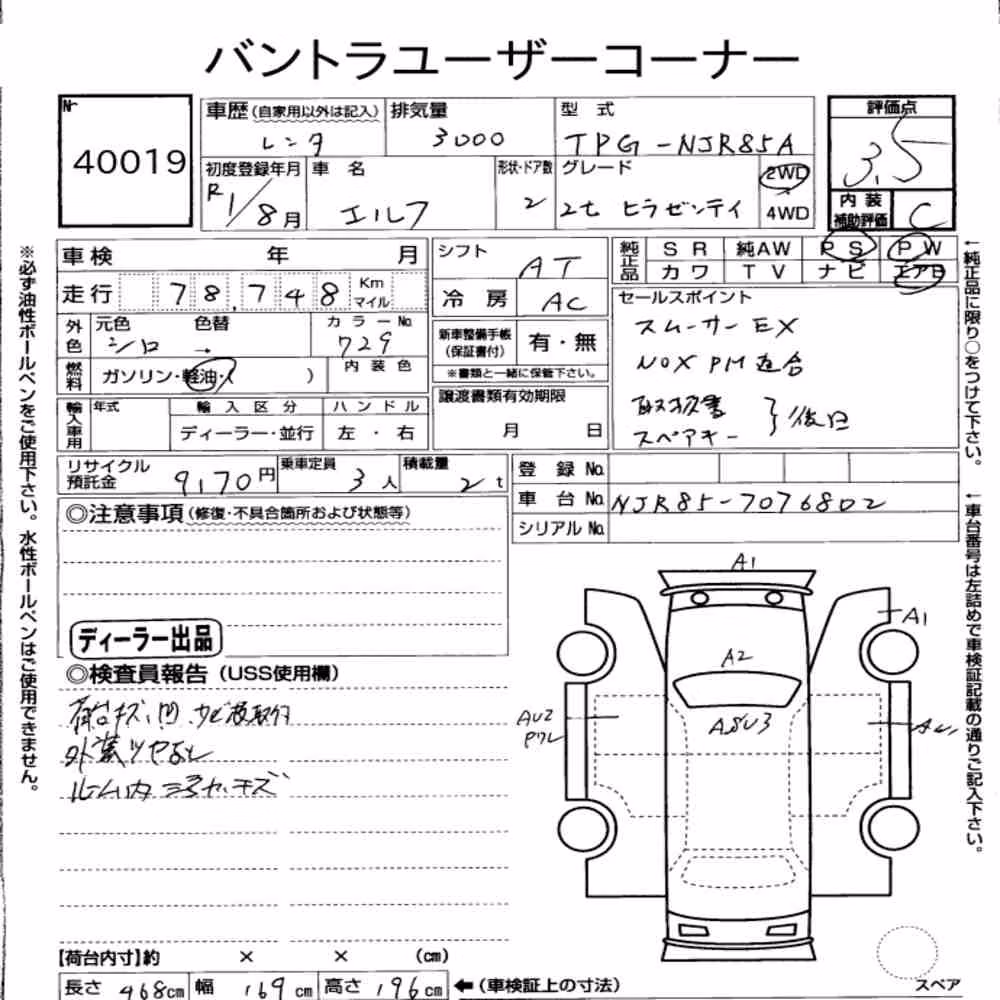 バントラユーザーコーナー
№
40019
車歴(自家用以外は記入)
レンタ
排気量
3000
型 式
TPG-NJR85A
評価点
3.5
初度登録年月
R1/8月
車 名
エルフ
形状・ドア数
2
グレード
2t ヒラボディ
2WD
4WD
内 装
補助評価
C
車検 年 月
走行 78,748 Km
マイル
シフト
AT
冷 房
AC
純正品
SR 純AW PS PW
カワ TV ナビ エアB
外色
元色 色替
シロ →
カラーNo.
729
新車整備手帳
(保証書付)
有・無
※書類と一緒に保管下さい。
燃料
ガソリン・軽油・( )
内 装 色
セールスポイント
スムーサーEX
NOX PM適合
取扱書
スペアキー
}後日
輸入車用
年式
輸 入 区 分
ディーラー・並行
ハ ン ド ル
左 ・ 右
譲渡書類有効期限
月 日
リサイクル
預託金
9,170円
乗車定員
3人
積載量
2t
登 録 No.
車 台 No. NJR85-7076802
シリアル No.
◎注意事項(修復・不具合箇所および状態等)
ディーラー出品
◎検査員報告(USS使用欄)
荷台キズ、凹、サビ
外装ツヤなし
ルーム内
キズ
A1
A1
A2
AU2
AU3
【荷台内寸】約 × × (cm)
長さ 468cm 幅 169cm 高さ 196cm ←(車検証上の寸法)
スペア
※必ず油性ボールペンをご使用下さい。水性ボールペンはご使用できません。
←純正品に限り○をつけて下さい。
←車台番号は左詰めで車検証記載の通りご記入下さい。